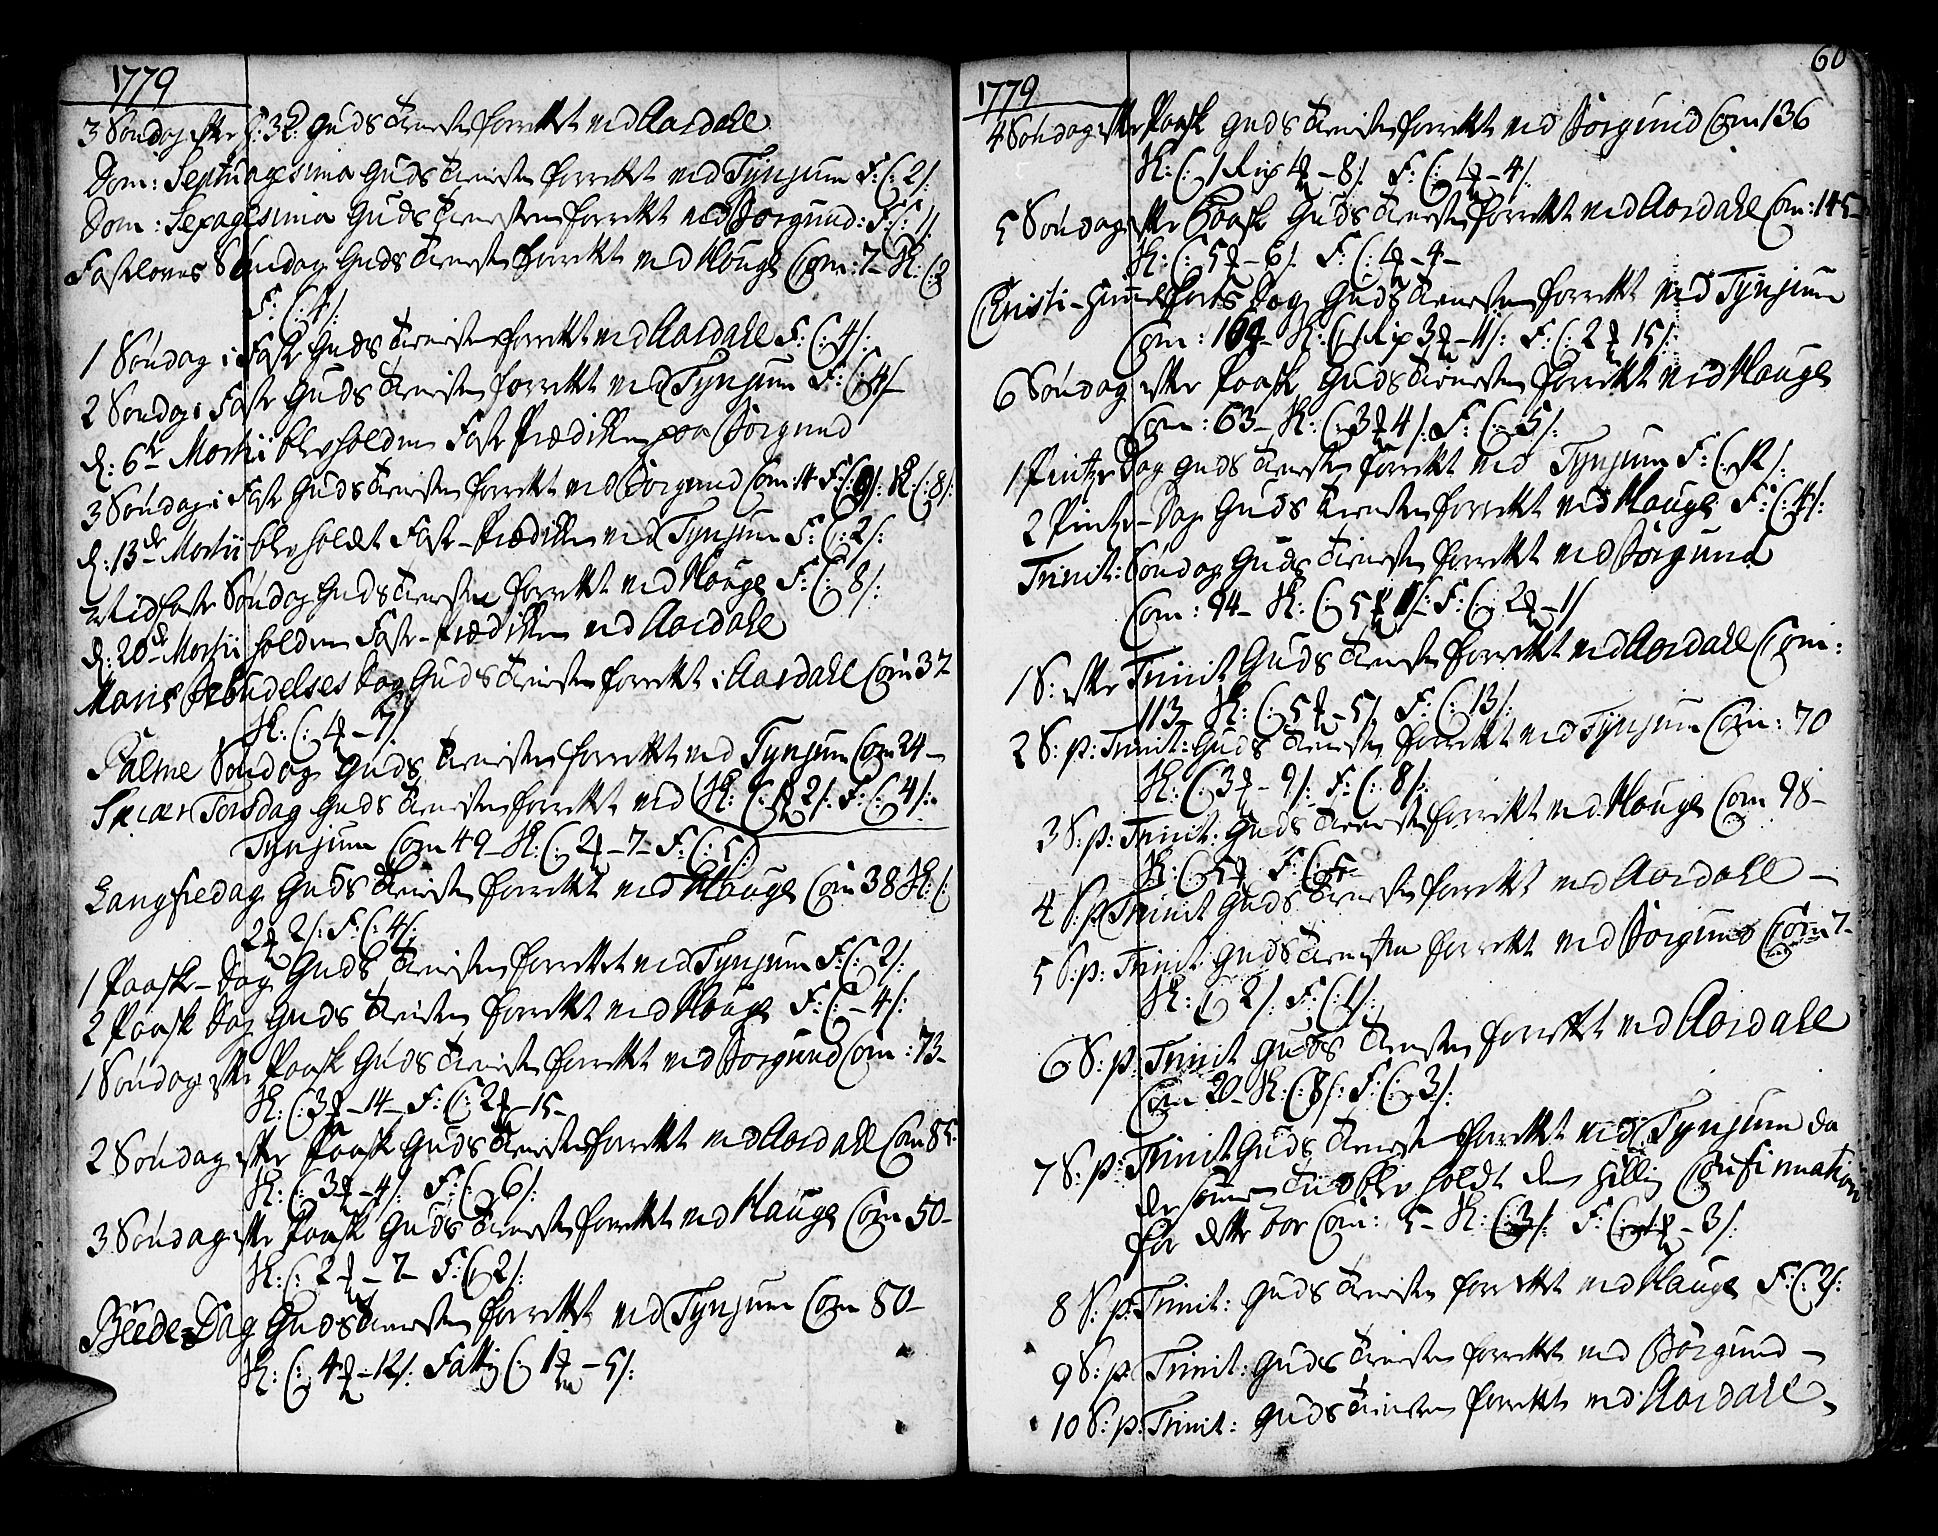 1779
3 Søndag efter H: 3 K: Guds Tienesten forrettet ved Aardahl
Dom: Septuagesima Guds Tienesten forrettet ved Tÿnjum F: C: 2/:
Dom: Sexagesima Guds Tienesten forrettet ved Borgund: F: C: 1/.
Fastelavns Søndag Guds Tienesten forrettet ved Houge Com: 7- K: C: 2
F: C: 4/:
1 Søndag i Faste Guds Tienesten forrettet ved Aardahl F: C: 4/:
2 Søndag i Faste Guds Tienesten forrettet ved Tÿnjum F: C: 4/-
d: 6te Martii blev holden Faste Prædiken paa Borgund
3 Søndag i Faste Guds Tienesten forrettet ved Borgund Com: 4 F: C: 9/: K: C: 8/:
d: 13de Martii blev holdt Faste-Prædiken ved Tÿnjum F: C: 2/:
Midfaste Søndag Guds Tienesten forrettet ved Houge F: C: 8/:
d: 20de Martii holden Faste-Prædiken ved Aardahl
Mariæ Bebudelses Dag Guds Tienesten forrettet i Aardahl Com 37
K: C: 4 - 7/:
Palme Søndag Guds Tienesten forrettet ved Tÿnjum Com 24-
K: C: 1 2/: F: C: 4/:
Skiær Torsdag Guds Tienesten forrettet ved
Tÿnjum Com 49- K: C: 2 - 7- F: C: 5/:
Langfredag Guds Tienesten forrettet ved Houge Com 38 K: C:
2 2/: F: C: 4/:
1 Paaske-Dag Guds Tienesten forrettet ved Tÿnjum F: C: 2/:
2 Paask Dag Guds Tienesten forrettet ved Houge F: C: - 4/:
1 Søndag efter Paask Guds Tienesten forrettet ved Borgund Com: 73-
K: C: 3 - 14- F: C: 2 - 15-
2 Søndag efter Paask Guds Tienesten forrettet ved Aardahl Com 85-
K: C: 3 - 4/: F: C: 6/:
3 Søndag efter Paask Guds Tienesten forrettet ved Hauge Com 50-
K: C: 2 - 7- F: C: 2/:
Beede-Dag Guds Tienesten forrettet ved Tÿnjum Com 80-
K: C: 4 - 12/: Fattig C: 1 - 5/:
60
1779
4 Søndag efter Paask Guds Tienesten forrettet ved Borgund Com 136
K: C: 1 Rix 4 - 8/: F: C: 4 - 4/:
5 Søndag efter Paask Guds Tienesten forrettet ved Aardahl Com: 145-
K: C: 5 - 6/: F: C: 4 - 4-
Christi-Himmelfarts Dag Guds Tienesten forrettet ved Tÿnjum
Com: 164- K: C: 1 Rix 3 - 4/: F: C: 2 15/:
6 Søndag efter Paask Guds Tienesten forrettet ved Houge
Com: 63- K: C: 3 4/: F: C: 5/:
1 Pintze Dag Guds Tienesten forrettet ved Tÿnjum F: C: 12/:
2 Pintze-Dag Guds Tienesten forrettet ved Houge F: C: 4/:
Trinit: Søndag Guds Tienesten forrettet ved Borgund
Com: 94- K: C: 5 F: C: 2 - 1/
1 S: efter Trinit Guds Tienesten forrettet ved Aardahl Com:
113- K: C: 5 - 5/: F: C: 13/:
2 S: p: Trinit: Guds Tienesten forrettet ved Tÿnjum Com: 70
K: C: 3 - 9/: F: C: 8/:
3 S: p: Trinit: Guds Tienesten forrettet ved Houge Com 98-
K: C: 5 F: C: 5-
4 S: p: Trinit Guds Tienesten forrettet ved Aardahl -
5 S: p: Trinit Guds Tienesten forrettet ved Borgund Com 7-
K: C: 2/: F: C: 1/:
6 S: p: Trinit Guds Tienesten forrettet ved Aardahl
Com 20- K: C: 8/: F: C: 3/:
7 S: p: Trinit Guds Tienesten forrettet ved Tÿnjum da
der samme Tid blev holdt den Hellig Confirmation
for dette Aar Com: 5- K: C: 3/: F: C: - 3/:
8 S: p: Trinit: Guds Tienesten forrettet ved Hauge F: C: 2/:
9 S: p: Trinit: Guds Tienesten forrettet ved Borgund -
10 S: p: Trinit: Guds Tienesten forrettet ved Aardahl -